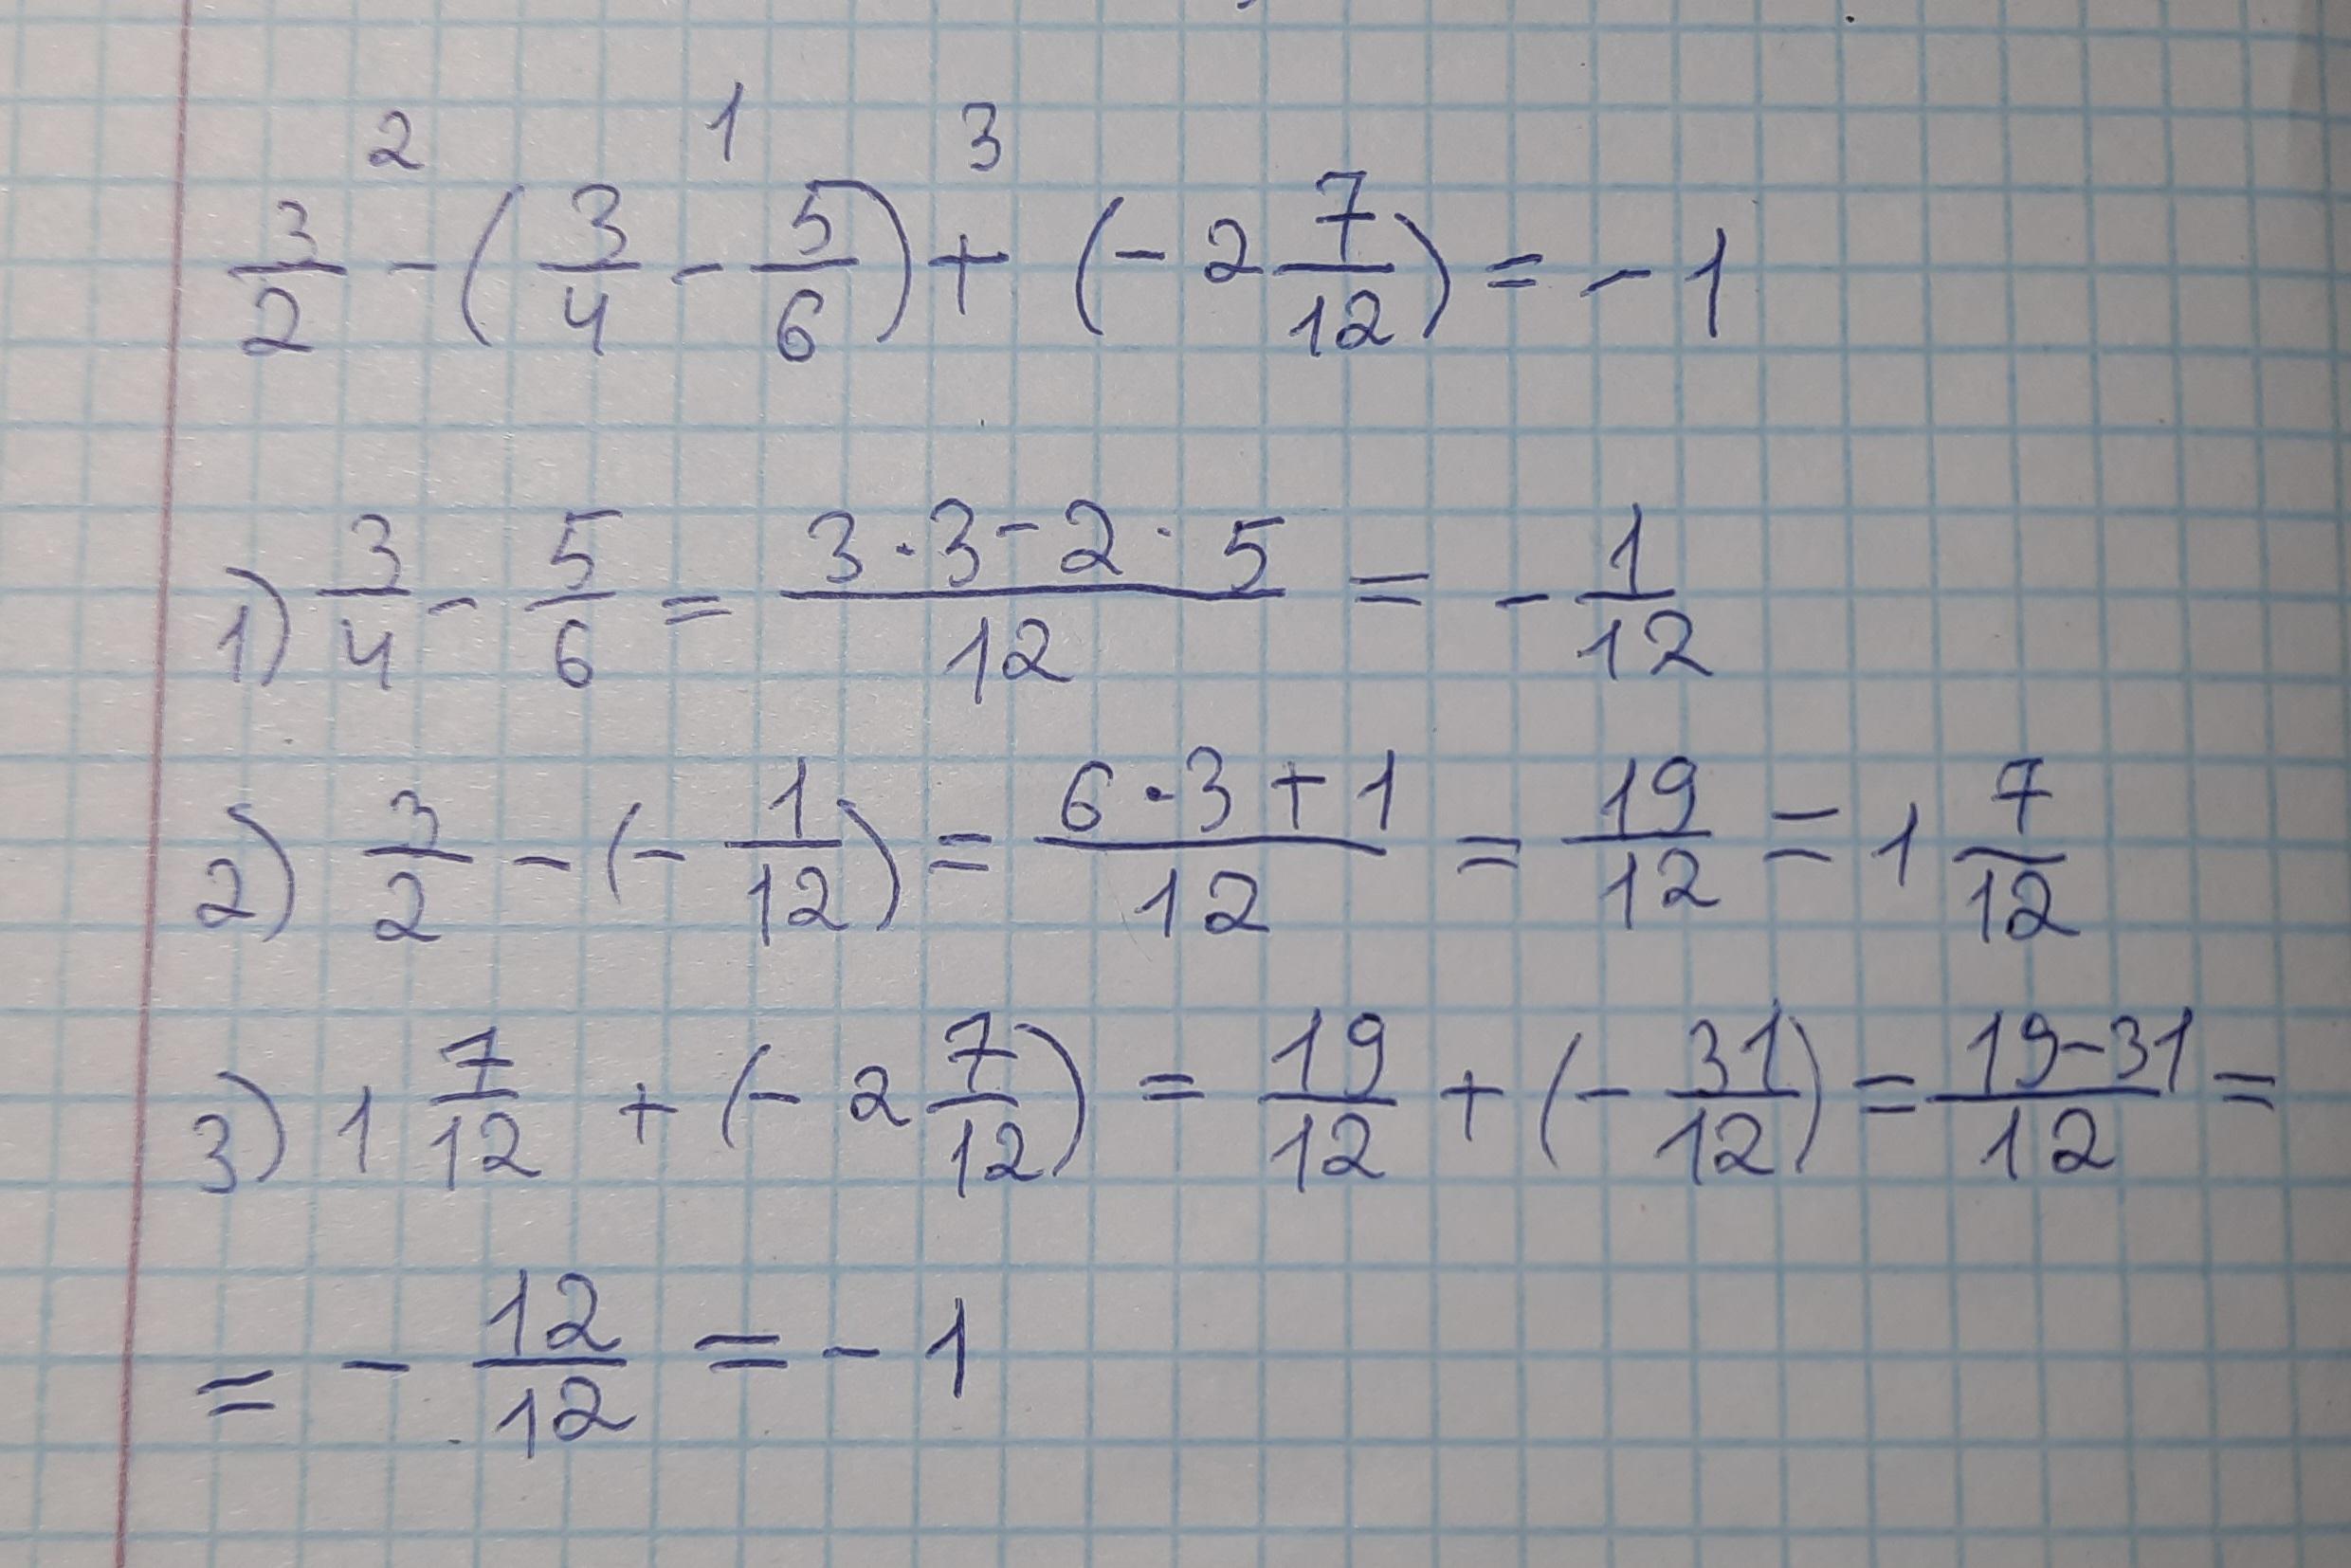 2 1 3
3/2 - (3/4 - 5/6) + (-2 7/12) = -1
1) 3/4 - 5/6 = (3·3-2·5)/12 = -1/12
2) 3/2 - (-1/12) = (6·3+1)/12 = 19/12 = 1 7/12
3) 1 7/12 + (-2 7/12) = 19/12 + (-31/12) = (19-31)/12 =
= -12/12 = -1